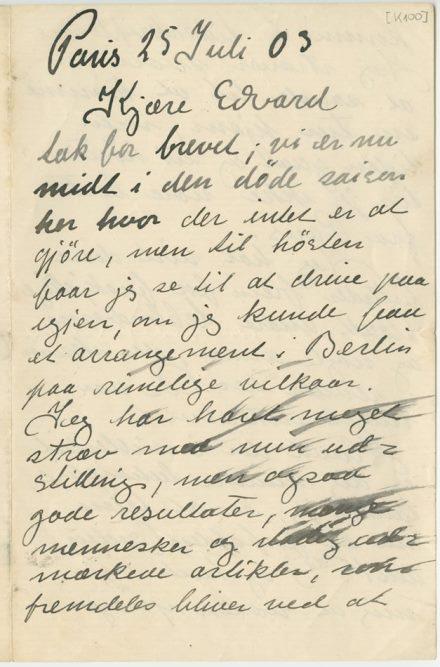 [K100]
Paris 25 Juli 03
Kjære Edvard
tak for brevet; vi er nu
midt i den döde saison
her hvor der intet er at
gjöre, men til hösten
faar jeg se til at drive paa
igjen, om jeg kunde faa
et arrangement i Berlin
paa rimelige vilkaar.
Jeg har havt meget
stræv med min ud-
stilling, men ogsaa
gode resultater, mange
mennesker og ud-
mærkede artikler, som
fremdeles bliver ved at